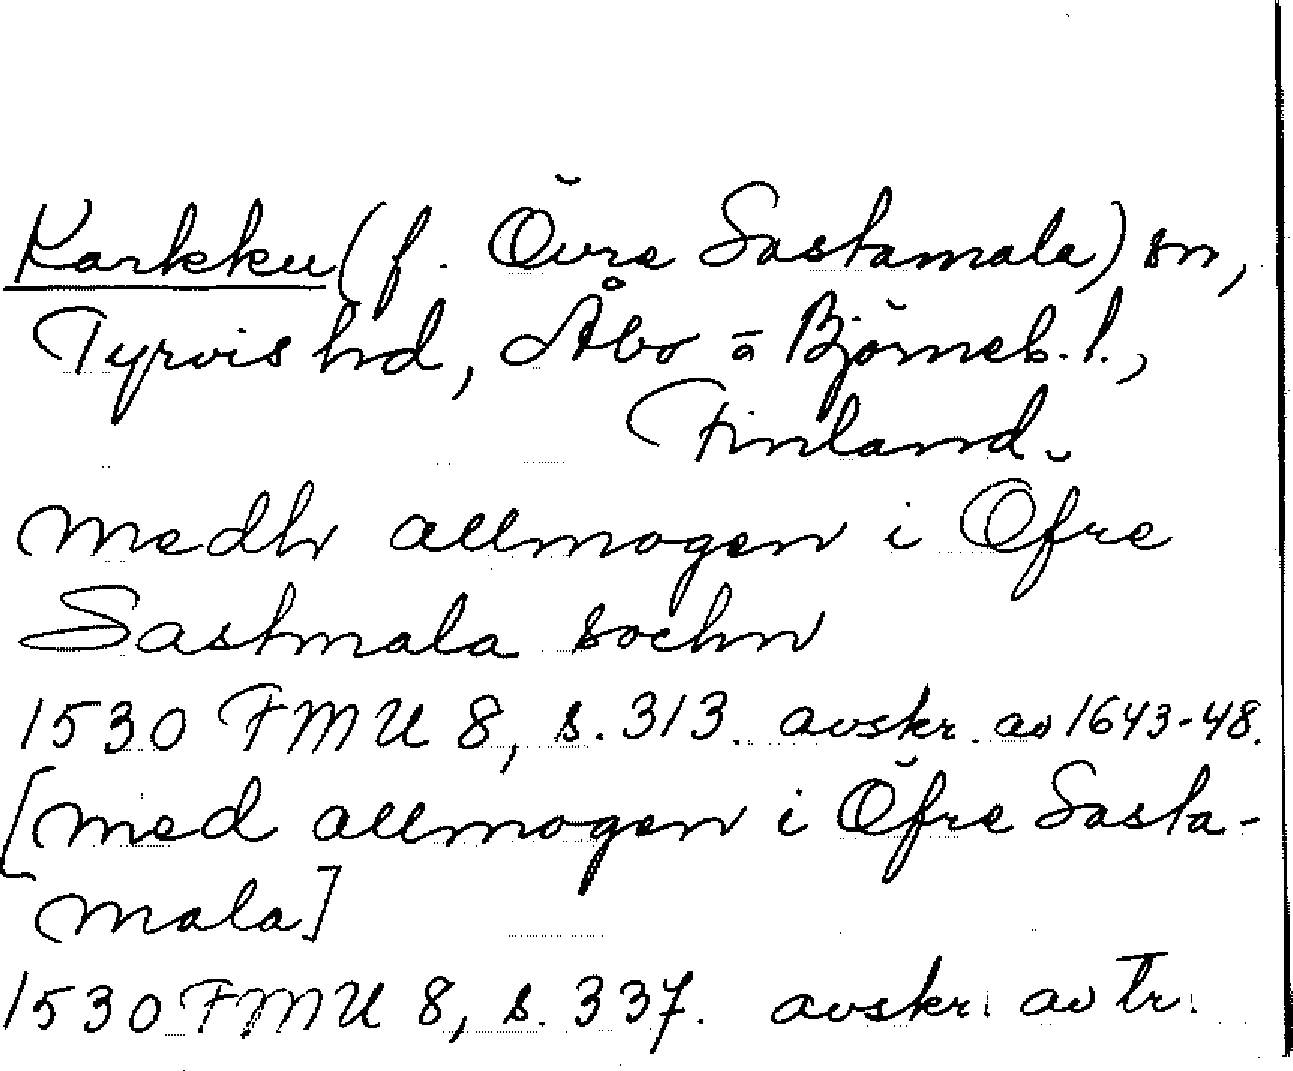 Karkku (f. Övre Sastamala) sn,
Tyrvis hd, Åbo o Björneb. l.,
Finland.
medh allmogen i Öfre
Sastmala sochn
1530 FMU 8, s. 313. avskr. av 1643-48.
[med allmogen i Öfre Sasta-
mala]
1530 FMU 8, s. 337. avskr. av Tr.